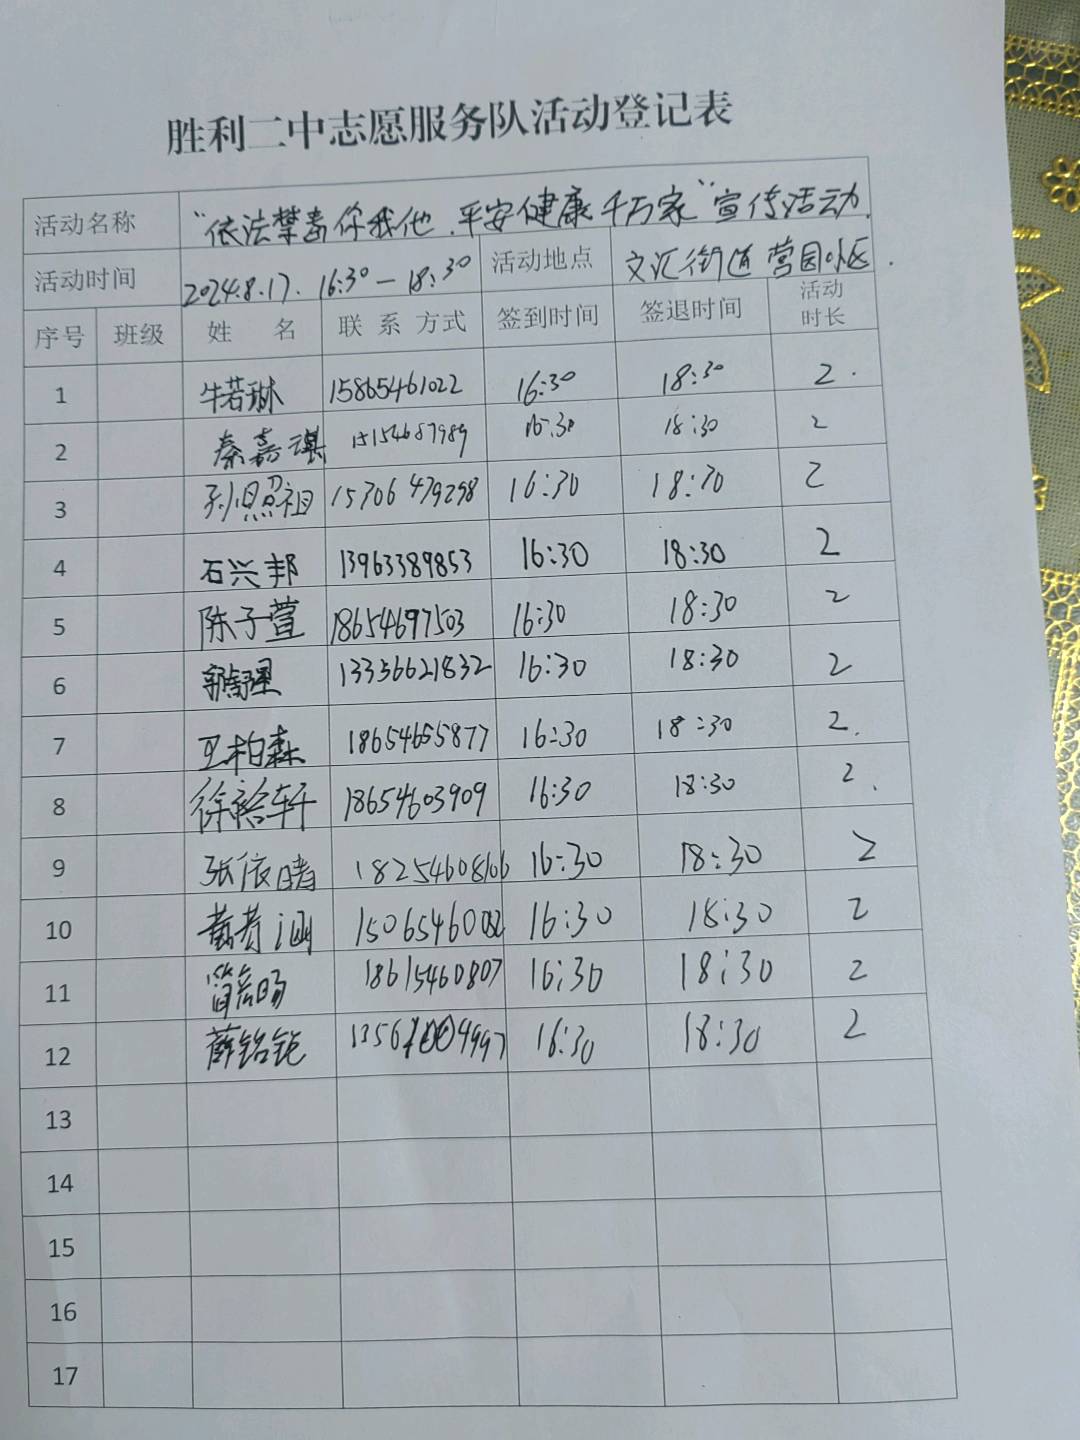 胜利二中志愿服务队活动登记表
活动名称 "依法禁毒你我他.平安健康千万家"宣传活动.
活动时间 2024.8.17. 16:30—18:30 活动地点 文汇街道 营园小区.
序号 班级 姓 名 联 系 方式 签到时间 签退时间 活动时长
1 牛若琳 15865461022 16:30 18:30 2.
2 秦嘉祺 15154687989 16:30 18:30 2
3 孙照祖 15306479298 16:30 18:30 2
4 石兴邦 13963389853 16:30 18:30 2
5 陈子萱 18654697503 16:30 18:30 2
6 13356621832 16:30 18:30 2
7 王柏森 18654655877 16:30 18:30 2.
8 徐裕轩 18654603909 16:30 18:30 2.
9 张依晴 18254608166 16:30 18:30 2
10 16:30 18:30 2
11 18615460807 16:30 18:30 2
12 薛铭钜 16:30 18:30 2
13
14
15
16
17